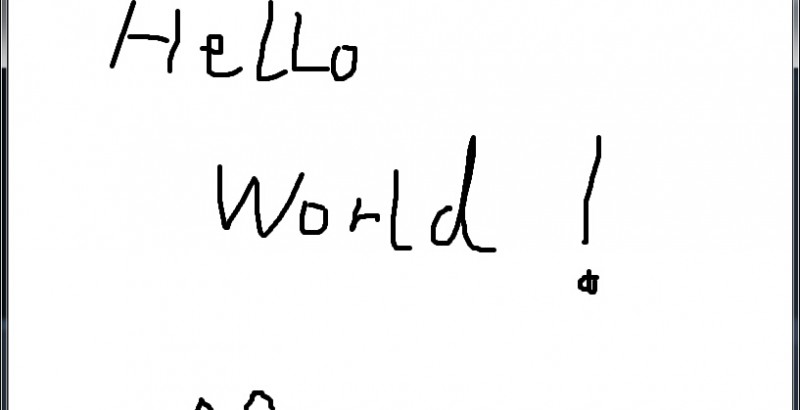 Hello
World !